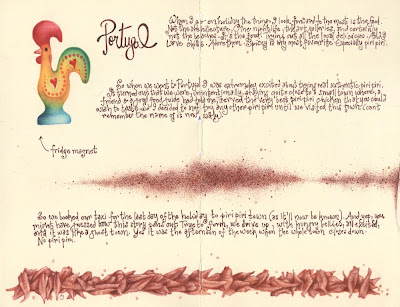 Portugal
When I am on holiday the thing I look forward to the most is the food.
Not the architecture, the nightlife, the art galleries, and certainly
not the beaches. It's the food. Trying out all the local delicacies. And I
love chilli. More than
Spicey is my most favourite. Especially piri piri.
So when we went to Portugal I was extremely excited about trying real authentic piri piri.
It turned out that we were, unintentionally, staying quite close to a small town where, a
friend & a good food guide had told me, served the very best piri piri chicken that you could
wish to taste. We decided to not try any other piri piri until we visited this town (can't
remember the name of it now, sadly).
fridge magnet
So we booked our taxi for the last day of the holiday to piri piri town (as it'll now be known). And, yes, you
might have guessed how this story pans out. Typically, we drive up, with hungry bellies, all excited,
and it was like a ghost town. Yes it was the afternoon of the week when the whole town closes down.
No piri piri.